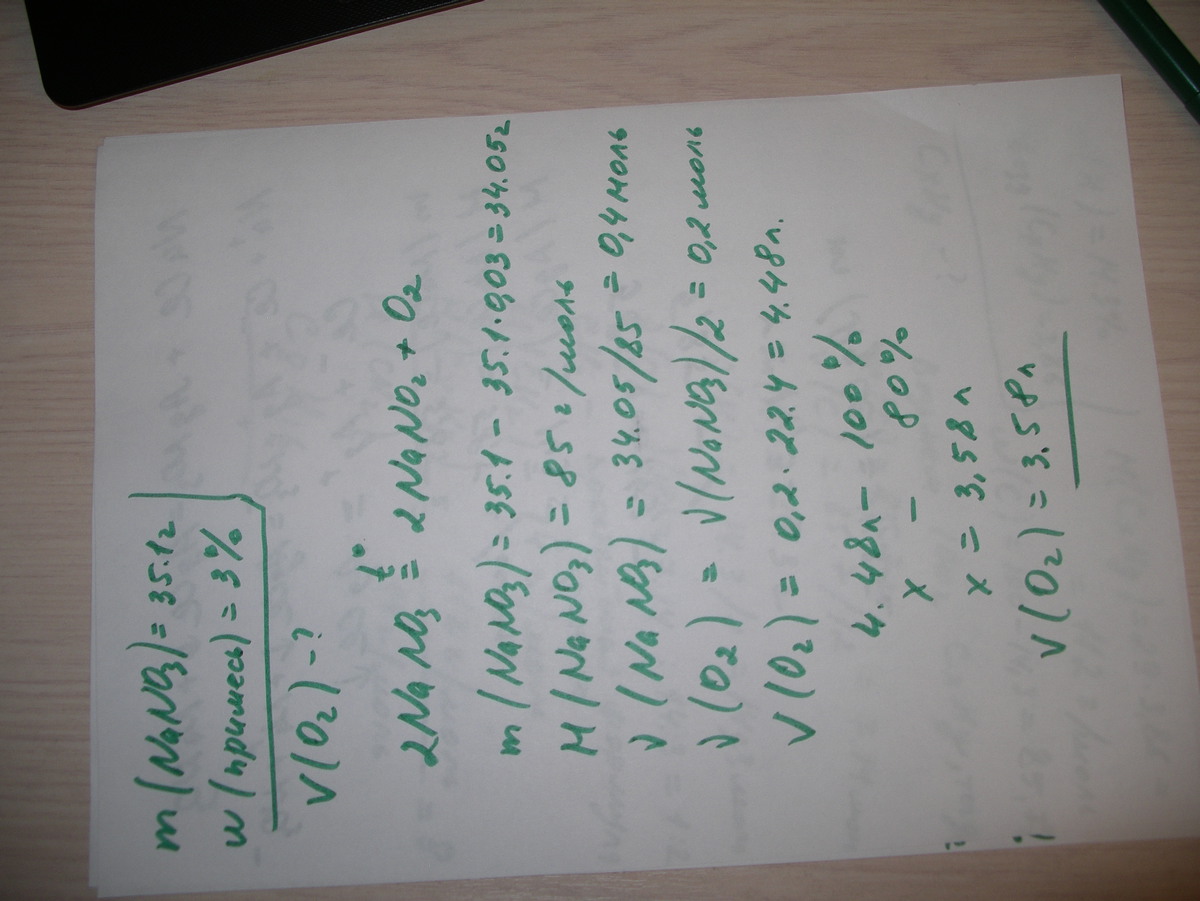 m(NaNO3)=35.1г
w(примесь)=3%
V(O2)-?
2NaNO3 t°= 2NaNO2 + O2
m(NaNO3)=35.1-35.1·0,03=34.05г
M(NaNO3)=85г/моль
ν(NaNO3)=34.05/85=0,4моль
ν(O2)=ν(NaNO3)/2=0,2моль
V(O2)=0,2·22.4=4.48л.
4.48л-100%
x - 80%
x=3,58л
V(O2)=3.58л